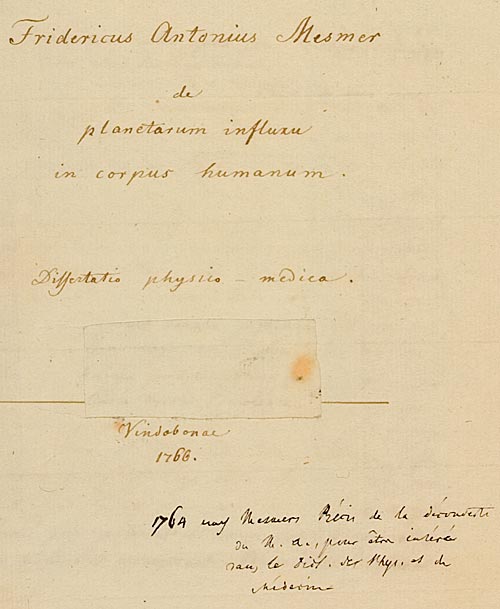 Fridericus Antonius Mesmer
de
planetarum influxu
in corpus humanum.
Dissertatio physico - medica.
Vindobonae
1766.
1764 Mesmers Précis de la découverte
du M. a., pour être inséré
dans le Dict. des Phys. et de
Médecine